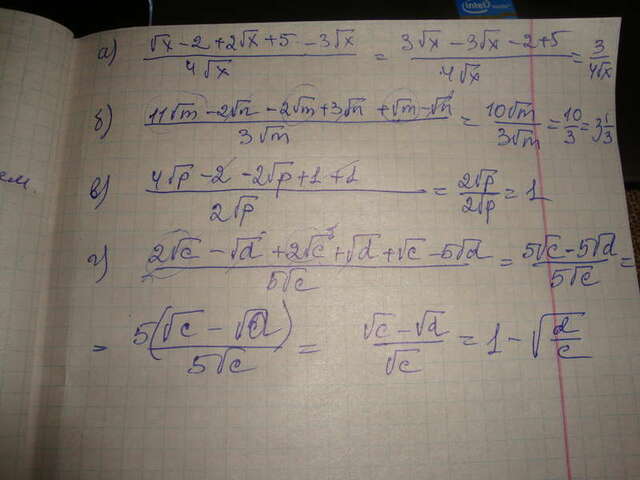 intel
ем.
а) (√x - 2 + 2√x + 5 - 3√x)/(4√x) = (3√x - 3√x - 2 + 5)/(4√x) = 3/(4√x)
б) (11√m - 2√n - 2√m + 3√n + √m - √n)/(3√m) = (10√m)/(3√m) = 10/3 = 3 1/3
в) (4√p - 2 - 2√p + 1 + 1)/(2√p) = (2√p)/(2√p) = 1
г) (2√c - √d + 2√c + √d + √c - 5√d)/(5√c) = (5√c - 5√d)/(5√c) =
= (5(√c - √d))/(5√c) = (√c - √d)/(√c) = 1 - √(d/c)